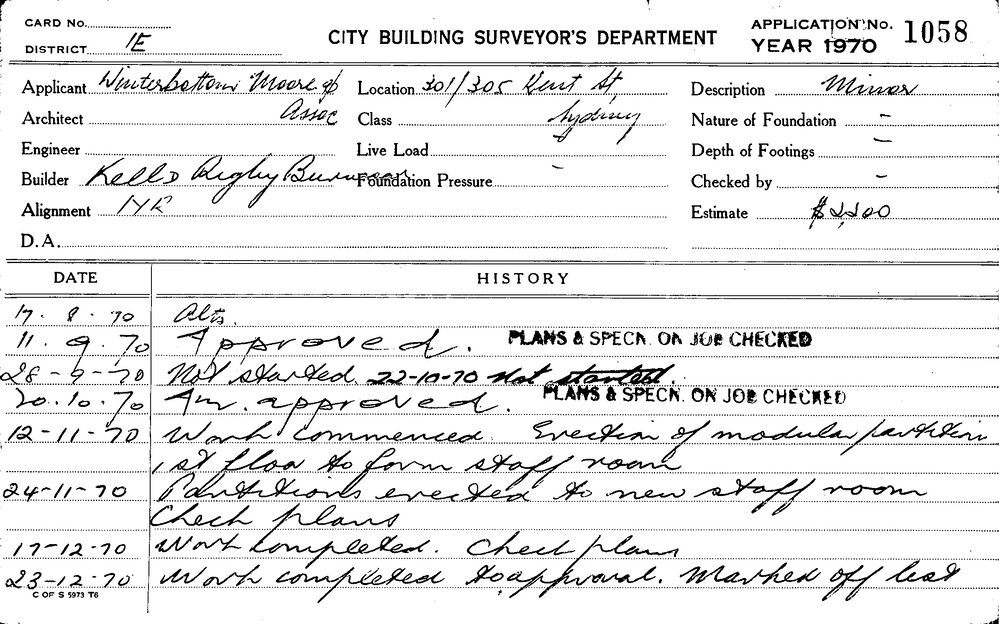 CARD No.
DISTRICT 1E
CITY BUILDING SURVEYOR'S DEPARTMENT
APPLICATION No. 1058
YEAR 1970
Applicant Winterbottom Moore &
Assoc
Location 301/305 Kent St,
Sydney
Description Minor
Architect
Class
Nature of Foundation -
Engineer
Live Load
Depth of Footings -
Builder Kell & Rigby
Foundation Pressure -
Checked by -
Alignment
Estimate $2,200
D.A.
DATE HISTORY
17. 8. 70 Alts.
11. 9. 70 Approved. PLANS & SPECN. ON JOB CHECKED
28-9-70 Not started. 22-10-70 Not started.
20.10.70 Am. approved. PLANS & SPECN. ON JOB CHECKED
12-11-70 Work commenced. Erection of modular partition
1st floor to form staff room
24-11-70 Partitions erected to new staff room
Check plans
17-12-70 Work completed. Check plans
23-12-70 Work completed to approval. Marked off last
C OF S 5973 T6